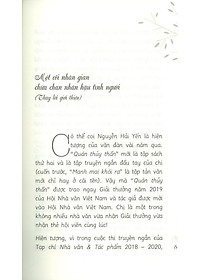 Một cõi nhân gian
chứa chan nhân hậu tình người
(Thay lời giới thiệu)
Có thể coi Nguyễn Hải Yến là hiện
tượng của văn đàn vài năm
qua bởi "Quán thủy thần" mới là tập sách
thứ hai và là tập truyện ngắn đầu tay của chị
(cuốn trước, "Manh mai khói rạ" là tập tản văn
mới chỉ hay ở cái tứ). Vậy mà "Quán thủy
thần" được trao ngay Giải thưởng năm 2019
của Hội Nhà văn Việt Nam và tác giả được mời
vào Hội Nhà văn Việt Nam. Chị là một trong
không nhiều nhà văn vừa nhận Giải thưởng vừa
nhận thẻ hội viên cùng lúc!
Hiện tượng, vì trong cuộc thi truyện ngắn của
Tạp chí Nhà văn & Tác phẩm 2018 – 2020,
5